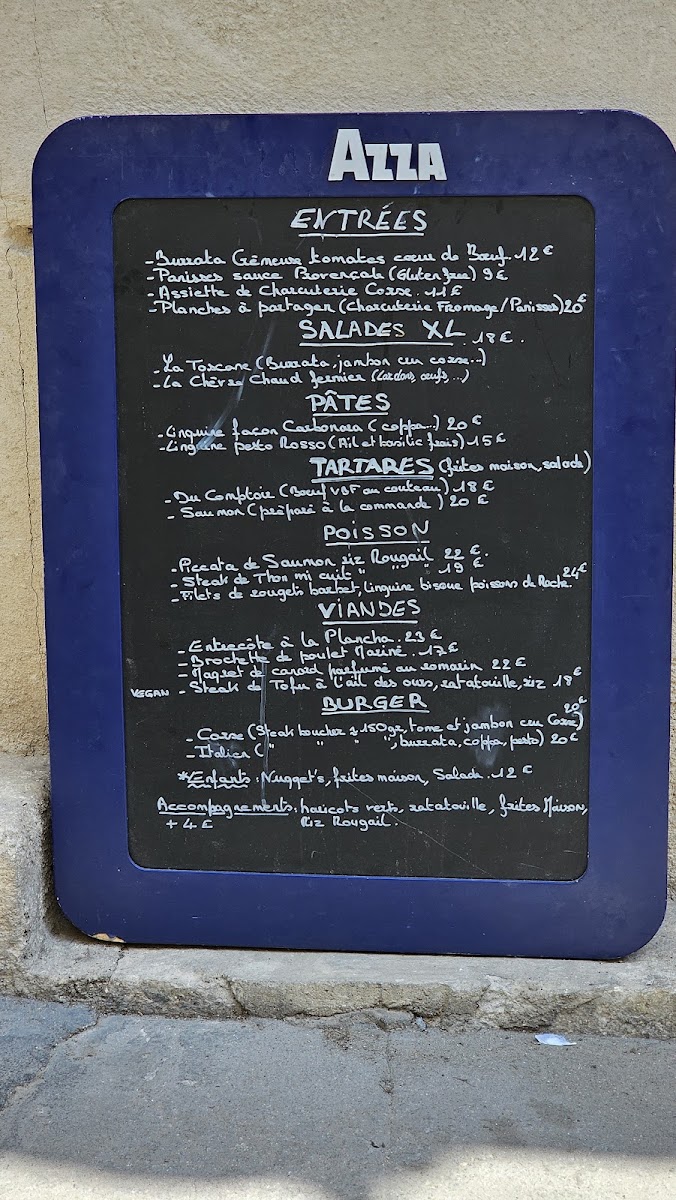 AZZA
ENTRÉES
- Burrata Crémeuse tomates cœur de Bœuf. 12€
- Panisses sauce Provençale (Gluten free) 9€
- Assiette de Charcuterie Corse. 11€
- Planches à partager (Charcuterie Fromage/Panisses) 20€
SALADES XL 18€.
- La Toscane (Burrata, jambon cru corse..)
- La Chèvre Chaud fermier (Lardons, œufs, ...)
PÂTES
- Linguine façon Carbonara (coppa..) 20€
- Linguine pesto Rosso (Ail et basilic frais) 15€
TARTARES (frites maison, salade)
- Du Comptoir (Bœuf VBF au couteau) 18€
- Saumon (préparé à la commande) 20€
POISSON
- Piccata de Saumon riz Rougail 22€.
- Steak de Thon mi cuit " " " 19€
- Filets de rougets barbet, linguine bisque poissons de Roche. 24€
VIANDES
- Entrecôte à la Plancha. 23€
- Brochette de poulet Mariné. 17€
- Magret de canard parfumé au romarin 22€
VEGAN - Steak de Tofu à l'ail des ours, ratatouille, riz 18€
BURGER
- Corse (Steak boucher ± 150gr, tome et jambon cru Corse) 20€
- Italien (" " ", burrata, coppa, pesto) 20€
*Enfants: Nugget's, frites maison, Salade. 12€
Accompagnements: haricots verts, ratatouille, frites Maison,
+ 4€ Riz Rougail.